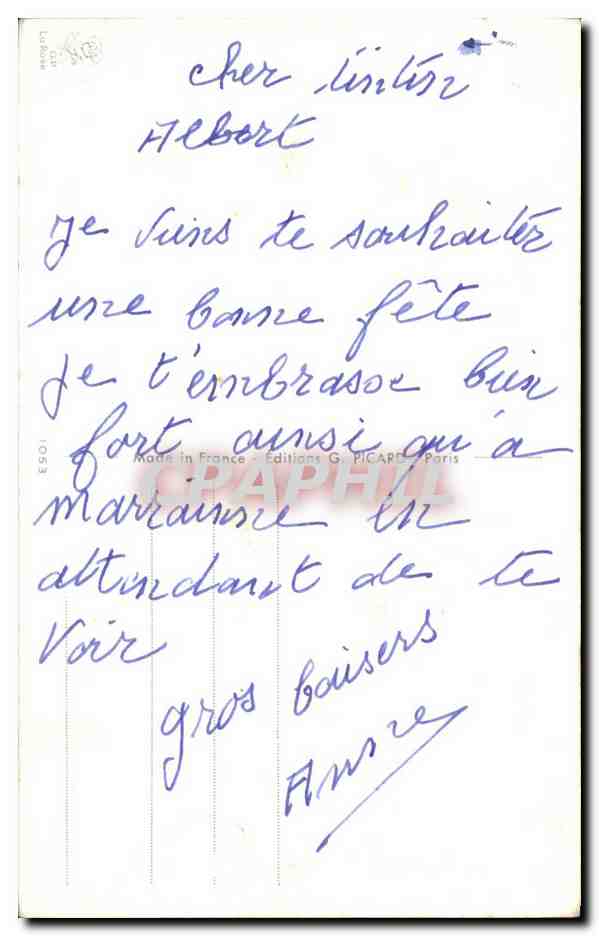 cher tintin
Albert
Je viens te souhaiter
une bonne fête
Je t'embrasse bien
fort ainsi qu'a
Made in France - Éditions G. PICARD - Paris
CPAPHIL
1053
marrainne en
attendant de te
Voir
gros baisers
Anne